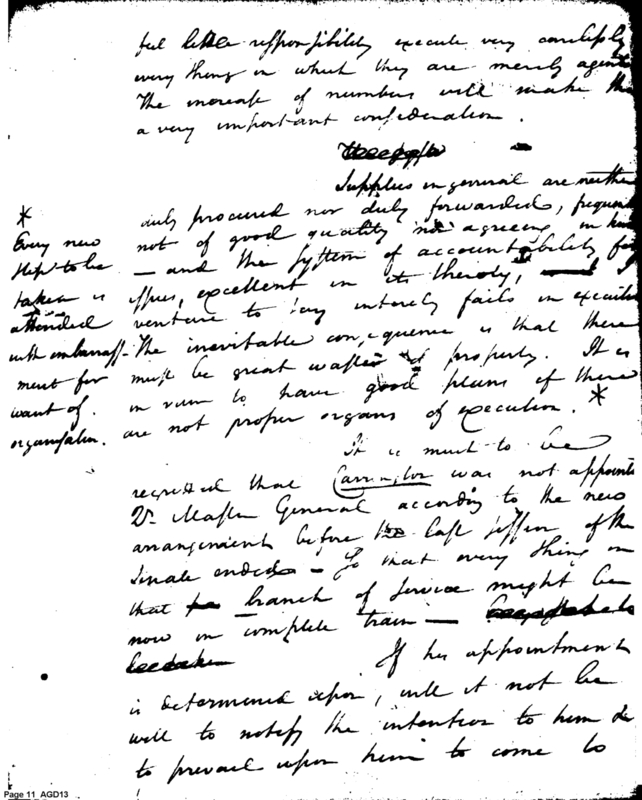 feel little responsibility execute very carelessly
every thing in which they are merely agents
The increase of numbers will make this
a very important consideration.
Supplies in general are neither
duly procured nor duly forwarded, frequently
not of good quality nor agreeing in kind
— and the system of accountability for
issues, excellent in its theory,
venture to say intirely fails in execution
The inevitable consequence is that there
must be great waste of property. It is
in vain to have good plans if there
are not proper organs of execution. *
*
Every new
step to be
taken is
attended
with embarrass-
ment for
want of
organisation.
It is much to be
regretted that Carrington was not appointed
Qr. Master General according to the new
arrangement before the last session of the
Senate ended — So that every thing in
that branch of service might be
now in complete train —
If his appointment
is determined upon, will it not be
well to notify the intention to him &
to prevail upon him to come to
Page 11 AGD13